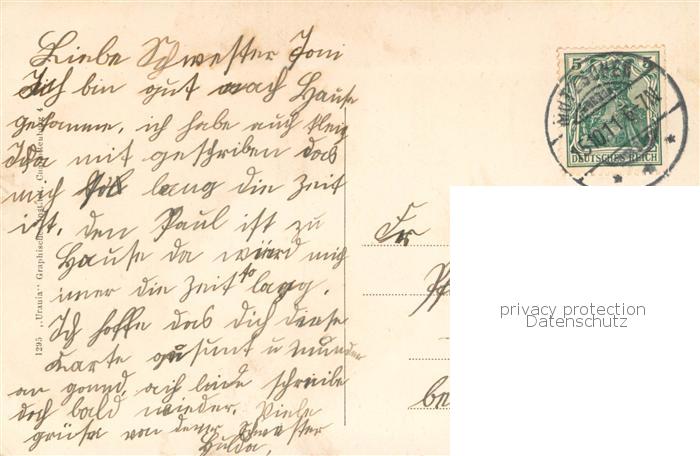 Liebe Schwester Toni
Ich bin gut nach Hause
gekomme, ich habe auch klein
Ida mit geschriben das
mich so lang die Zeit
ist, den Paul ist zu
Hause da würd mich
imer die Zeit to lagg.
Ich hoffe das dich diese
Karte gusunt u munder
an
schreibe
doch bald wieder. Viele
grüse von deiner Schwester
Hulda.
1295 „Urania“ Graphische
5 5
15.10.11. 6-7N
DEUTSCHES REICH
Fr
Pf
be
privacy protection
Datenschutz